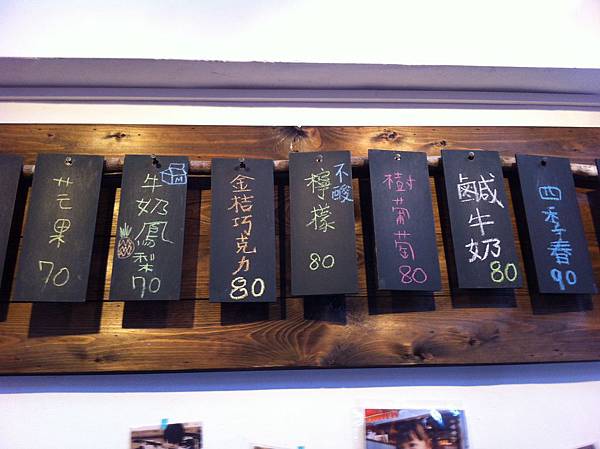 芒果
70
牛奶鳳梨
70
金桔巧克力
80
不酸
檸檬
80
樹葡萄
80
鹹牛奶
80
四季春
90